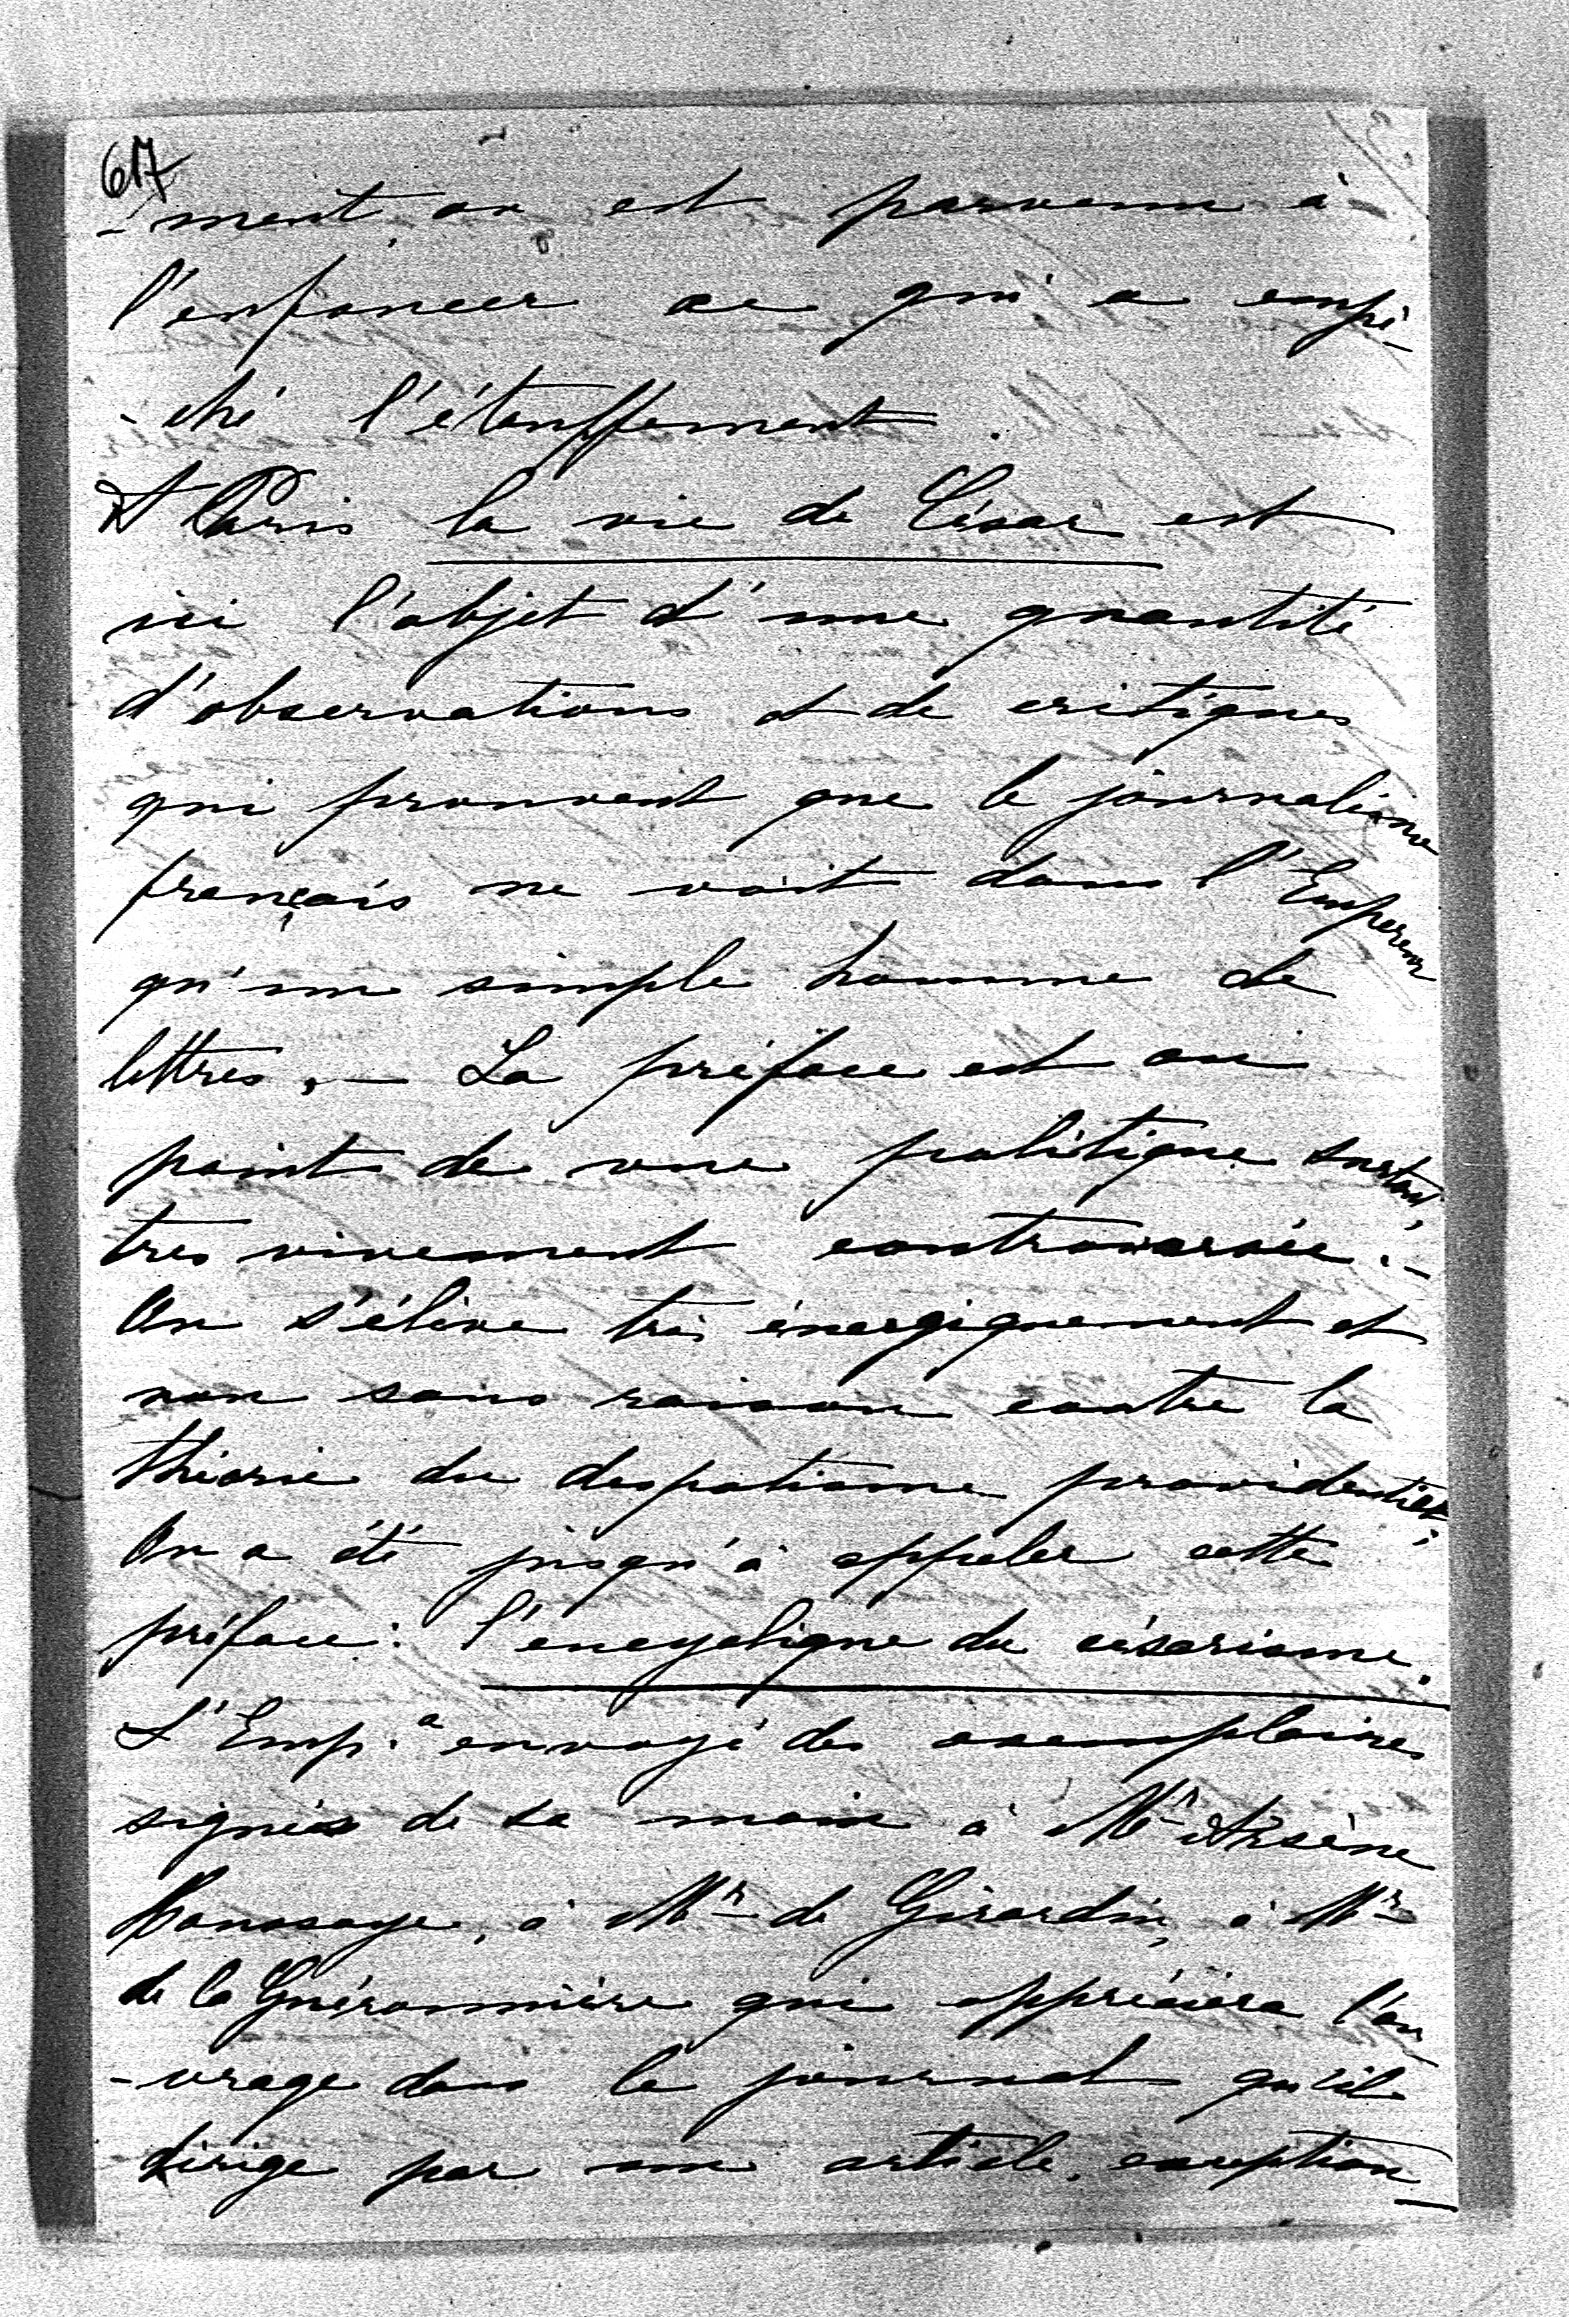 617
-ment, on est parvenu à
l'enfoncer ce qui a empê-
-ché l'étouffement.
A Paris la vie de César est
ici l'objet d'une quantité
d'observations et de critiques
qui prouvent que le journalisme
français ne voit dans l'Empereur
qu'un simple homme de
lettres. — La préface est au
point de vue politique surtout
très vivement controversée. —
On s'élève très énergiquement et
non sans raison contre la
théorie du despotisme providentiel;
On a été jusqu'à appeler cette
préface: l'encyclique du césarisme.
L'Emp. a envoyé des exemplaires
signés de sa main à Mr Arsène
Houssaye, à Mr de Girardin, à Mr
de la Guéronnière qui appréciera l'ou-
-vrage dans le journal qu'il
dirige par un article exception-